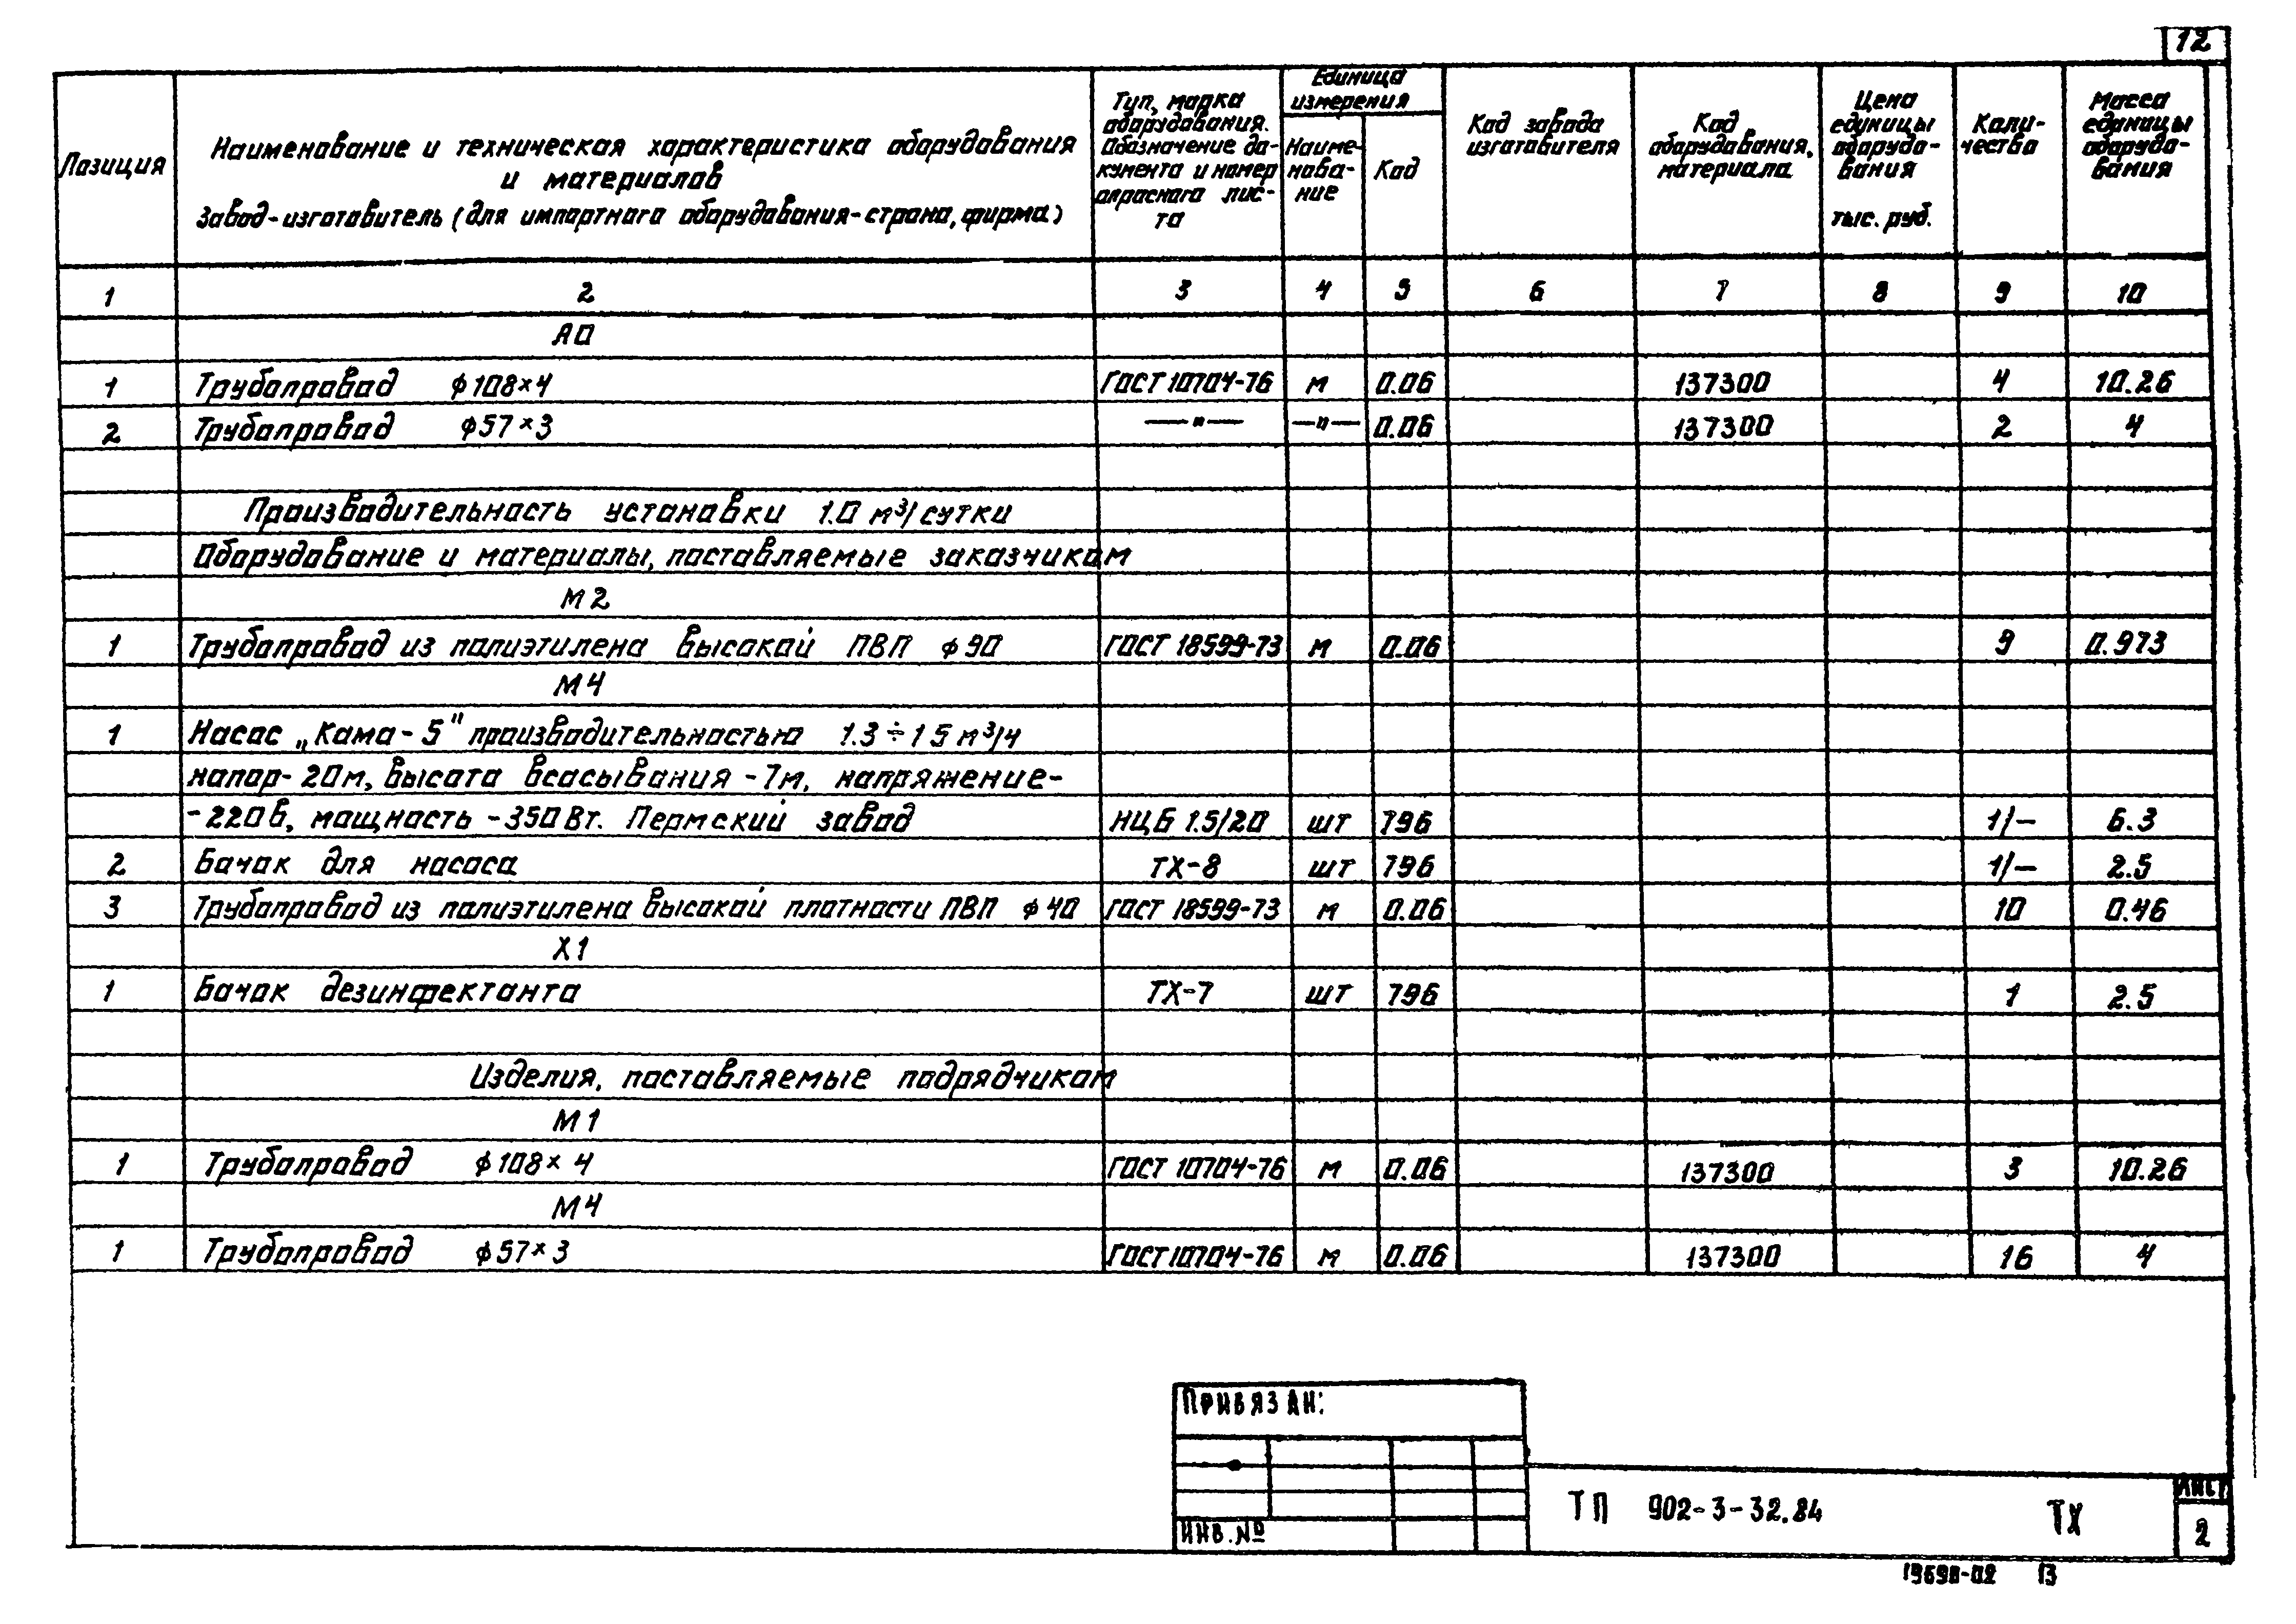 12
Позиция
Наименование и техническая характеристика оборудования
и материалов
Завод-изготовитель (для импортного оборудования-страна, фирма)
Тип, марка
оборудования.
Обозначение до-
кумента и номер
опросного лис-
та
Единица
измерения
Наиме-
нова-
ние
Код
Код завода
изготовителя
Код
оборудования,
материала
Цена
единицы
оборудо-
вания
тыс. руб.
Коли-
чество
Масса
единицы
оборудо-
вания
1 2 3 4 5 6 7 8 9 10
А0
1 Трубопровод ф108×4 ГОСТ 10704-76 м 0.06 137300 4 10.26
2 Трубопровод ф57×3 —"— —"— 0.06 137300 2 4
Производительность установки 1.0 м³/сутки
Оборудование и материалы, поставляемые заказчиком
М2
1 Трубопровод из полиэтилена высокой ПВП ф90 ГОСТ 18599-73 м 0.06 9 0.973
М4
1 Насос „Кама-5" производительностью 1.3÷1 5 м³/ч
напор-20м, высота всасывания -7м, напряжение-
-220в, мощность -350Вт. Пермский завод НЦБ 1.5/20 шт 796 1/— 6.3
2 Бачок для насоса ТХ-8 шт 796 1/— 2.5
3 Трубопровод из полиэтилена высокой плотности ПВП ф40 ГОСТ 18599-73 м 0.06 10 0.46
Х1
1 Бачок дезинфектанта ТХ-7 шт 796 1 2.5
Изделия, поставляемые подрядчиком
М1
1 Трубопровод ф108×4 ГОСТ 10704-76 м 0.06 137300 3 10.26
М4
1 Трубопровод ф57×3 ГОСТ 10704-76 м 0.06 137300 16 4
ПРИВЯЗАН:
ИНВ.№
ТП 902-3-32.84 ТХ
ЛИСТ
2
19690-02 13